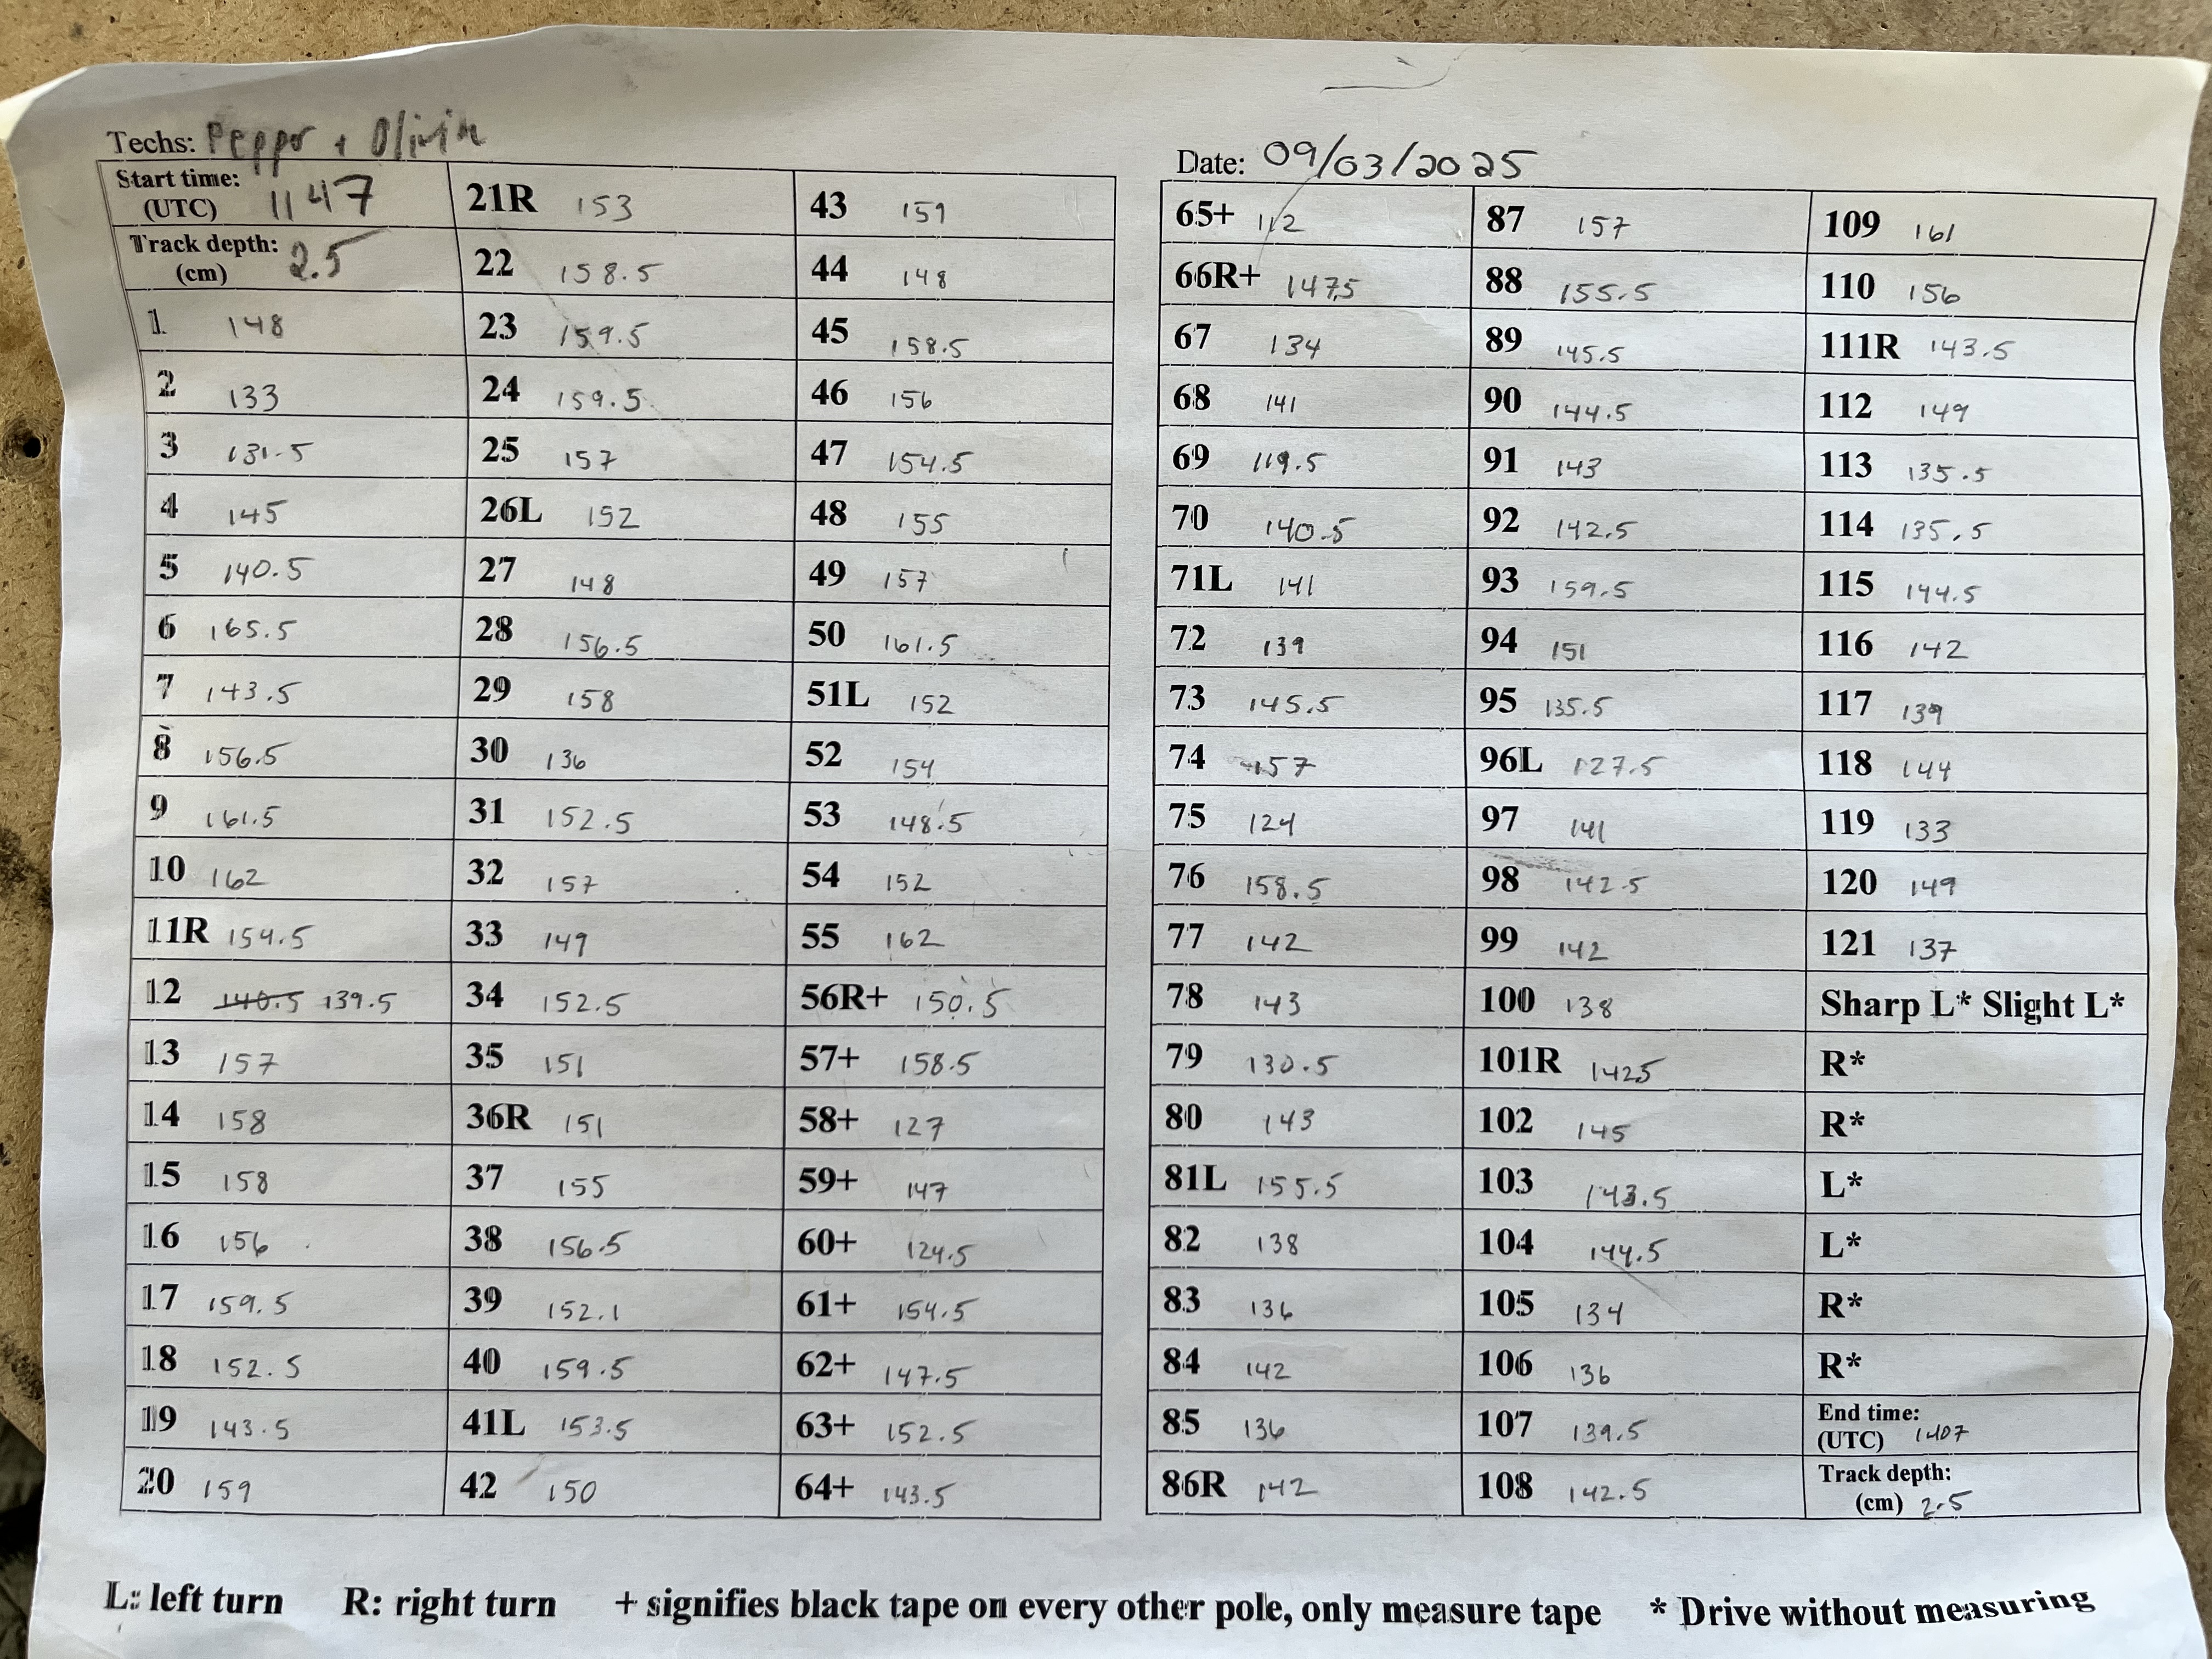 Techs: Pepper + Olivia
Date: 09/03/2025
Start time: (UTC) 1147
Track depth: (cm) 2.5
1 148
2 133
3 131.5
4 145
5 140.5
6 165.5
7 143.5
8 156.5
9 161.5
10 162
11R 154.5
12 140.5 139.5
13 157
14 158
15 158
16 156
17 159.5
18 152.5
19 143.5
20 159
21R 153
22 158.5
23 159.5
24 159.5
25 157
26L 152
27 148
28 156.5
29 158
30 136
31 152.5
32 157
33 149
34 152.5
35 151
36R 151
37 155
38 156.5
39 152.1
40 159.5
41L 153.5
42 150
43 159
44 148
45 158.5
46 156
47 154.5
48 155
49 157
50 161.5
51L 152
52 154
53 148.5
54 152
55 162
56R+ 150.5
57+ 158.5
58+ 127
59+ 147
60+ 124.5
61+ 154.5
62+ 147.5
63+ 152.5
64+ 143.5
65+ 112
66R+ 147.5
67 134
68 141
69 119.5
70 140.5
71L 141
72 139
73 145.5
74 157
75 124
76 158.5
77 142
78 143
79 130.5
80 143
81L 155.5
82 138
83 136
84 142
85 136
86R 142
87 157
88 155.5
89 145.5
90 144.5
91 143
92 142.5
93 159.5
94 151
95 135.5
96L 127.5
97 141
98 142.5
99 142
100 138
101R 1425
102 145
103 143.5
104 144.5
105 134
106 136
107 139.5
108 142.5
109 161
110 156
111R 143.5
112 149
113 135.5
114 135.5
115 144.5
116 142
117 139
118 144
119 133
120 149
121 137
Sharp L* Slight L*
R*
R*
L*
L*
R*
R*
End time: (UTC) 1407
Track depth: (cm) 2.5
L: left turn R: right turn + signifies black tape on every other pole, only measure tape * Drive without measuring